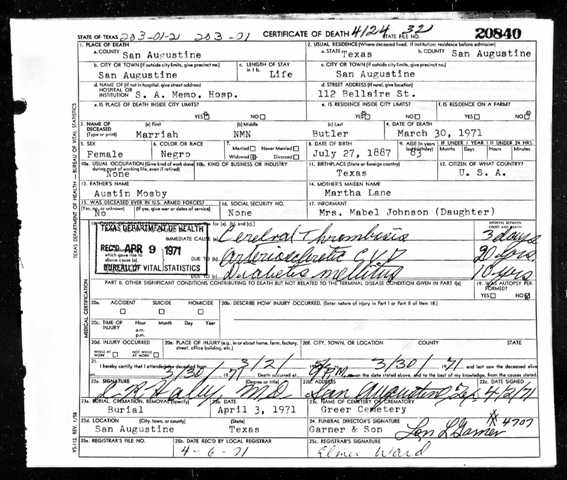 STATE OF TEXAS 203-01-21 203-01 CERTIFICATE OF DEATH 4124 32 STATE FILE NO. 20840
1. PLACE OF DEATH 2. USUAL RESIDENCE (Where deceased lived. If institution: residence before admission)
a. COUNTY San Augustine a. STATE Texas b. COUNTY San Augustine
b. CITY OR TOWN (If outside city limits, give precinct no.) c. LENGTH OF STAY in 1 b. c. CITY OR TOWN (If outside city limits, give precinct no.)
San Augustine Life San Augustine
d. NAME OF (If not in hospital, give street address) HOSPITAL OR INSTITUTION S. A. Memo. Hosp. d. STREET ADDRESS (If rural, give location) 112 Bellaire St.
e. IS PLACE OF DEATH INSIDE CITY LIMITS? e. IS RESIDENCE INSIDE CITY LIMITS? f. IS RESIDENCE ON A FARM?
YES NO YES NO YES NO
3. NAME OF DECEASED (Type or print) (a) First (b) Middle (c) Last 4. DATE OF DEATH
Marriah NMN Butler March 30, 1971
5. SEX 6. COLOR OR RACE 7. Married Never Married 8. DATE OF BIRTH 9. AGE (In years last birthday) IF UNDER 1 YEAR IF UNDER 24 HRS.
Female Negro Widowed Divorced July 27, 1887 83 Months Days Hours Min.
10a. USUAL OCCUPATION (Give kind of work done during most of working life, even if retired) 10b. KIND OF BUSINESS OR INDUSTRY 11. BIRTHPLACE (State or foreign country) 12. CITIZEN OF WHAT COUNTRY?
None Texas U. S. A.
13. FATHER'S NAME 14. MOTHER'S MAIDEN NAME
Austin Mosby Martha Lane
15. WAS DECEASED EVER IN U.S. ARMED FORCES? 16. SOCIAL SECURITY NO. 17. INFORMANT
No (If yes, give war or dates of service) None Mrs. Mabel Johnson (Daughter)
TEXAS DEPARTMENT OF HEALTH
REC'D APR 9 1971
BUREAU OF VITAL STATISTICS
IMMEDIATE CAUSE Cerebral Thrombosis 3 days
DUE TO Arteriosclerotic C.V.D 20 yrs.
DUE TO Diabetis mellitus 10 yrs
PART II. OTHER SIGNIFICANT CONDITIONS CONTRIBUTING TO DEATH BUT NOT RELATED TO THE TERMINAL DISEASE CONDITION GIVEN IN PART I(a) 19. WAS AUTOPSY PERFORMED?
YES NO
20a. ACCIDENT SUICIDE HOMICIDE 20b. DESCRIBE HOW INJURY OCCURRED. (Enter nature of injury in Part I or Part II of item 18.)
20c. TIME OF INJURY Hour Month Day Year
a.m.
p.m.
20d. INJURY OCCURRED 20e. PLACE OF INJURY (e.g., in or about home, farm, factory, street, office building, etc.) 20f. CITY, TOWN, OR LOCATION COUNTY STATE
WHILE AT WORK NOT WHILE AT WORK
21. I hereby certify that I attended the deceased 3/2/ 3/30/71
3/30/71 Death occurred at P.M. and to the best of my knowledge, from the causes stated.
22a. SIGNATURE (Degree or title) 22b. ADDRESS 22c. DATE SIGNED
M.D. San Augustine, Tex 4/2/71
23a. BURIAL, CREMATION, REMOVAL (Specify) 23b. DATE 23c. NAME OF CEMETERY OR CREMATORY
Burial April 3, 1971 Greer Cemetery
23d. LOCATION (City) (State) 24. FUNERAL DIRECTOR'S SIGNATURE
San Augustine Texas Garner & Son Garner # 4707
25a. REGISTRAR'S FILE NO. 25b. DATE REC'D BY LOCAL REGISTRAR 25c. REGISTRAR'S SIGNATURE
4-6-71 Elmer Ward
TEXAS DEPARTMENT OF HEALTH — BUREAU OF VITAL STATISTICS
MEDICAL CERTIFICATION